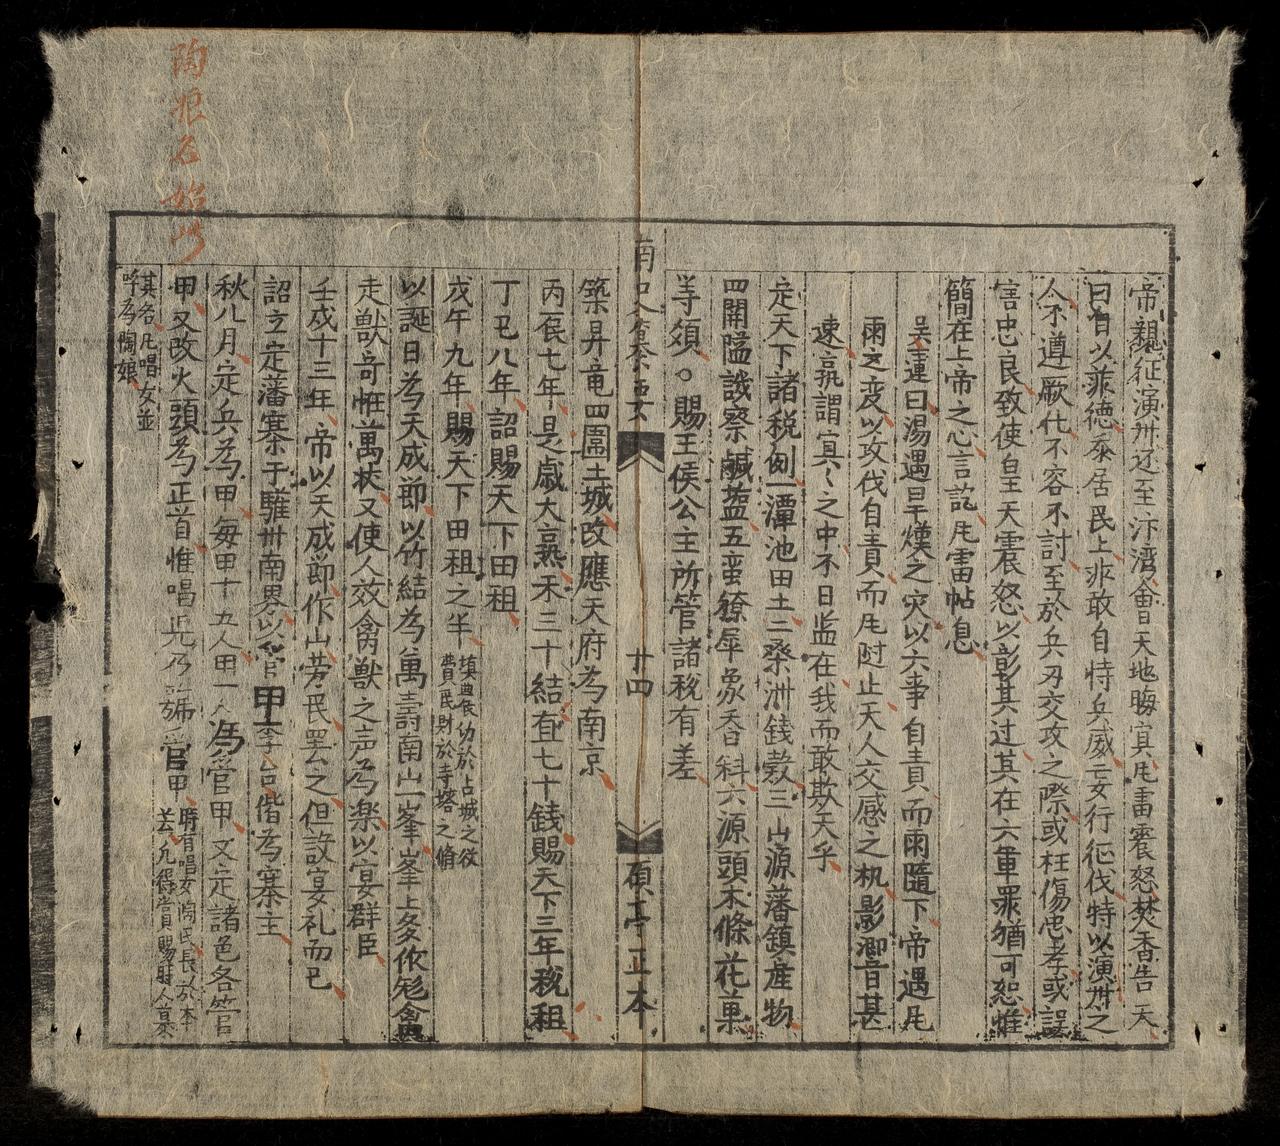 帝親征演州还至汴湾會天地晦冥凬雷震怒焚香告天
曰自以菲德忝居民上非敢自恃兵威妄行征伐特以演州之
人不遵厥化不容不討至於兵刃交攻之際或枉傷忠孝或誤
害忠良致使皇天震怒以彰其过其在六軍罪猶可恕惟
簡在上帝之心言訖凬雷帖息
吳運曰湯遇旱熯之灾以六事自責而雨隨下帝遇凬
雨之变以攻伐自責而凬时止天人交感之机影响音甚
速孰謂冥冥之中不日监在我而敢欺天乎
定天下諸税例一潭池田土二桑洲錢款三山源藩鎮産物
四開隘譏察鹹塩五蛮獠犀象香料六源頭木條花菓
等須○賜王侯公主所管諸税有差
南 史 纂 要
廿四
碩亭正本
築昇竜四圍土城改應天府為南京
丙辰七年是歲大熟禾三十結有七十錢賜天下三年税租
丁巳八年詔賜天下田租
戊午九年賜天下田租之半
以誕日為天成節以竹結為萬壽南山一峯峯上多作兎禽
走獸奇恠萬状又使人效禽獸之声為樂以宴群臣
壬戌十三年帝以天成節作山劳民罢之但設宴礼而已
詔立定藩寨于驩卅南界以管甲李台偕為寨主
秋八月定兵為甲每甲十五人用一人為管甲又定諸色各管
甲又改火頭為正首惟唱児乃號管甲時有唱女陶氏長於本
芸凢得賞賜財人慕
其名凢唱女並
呼為陶娘
陶娘名始此